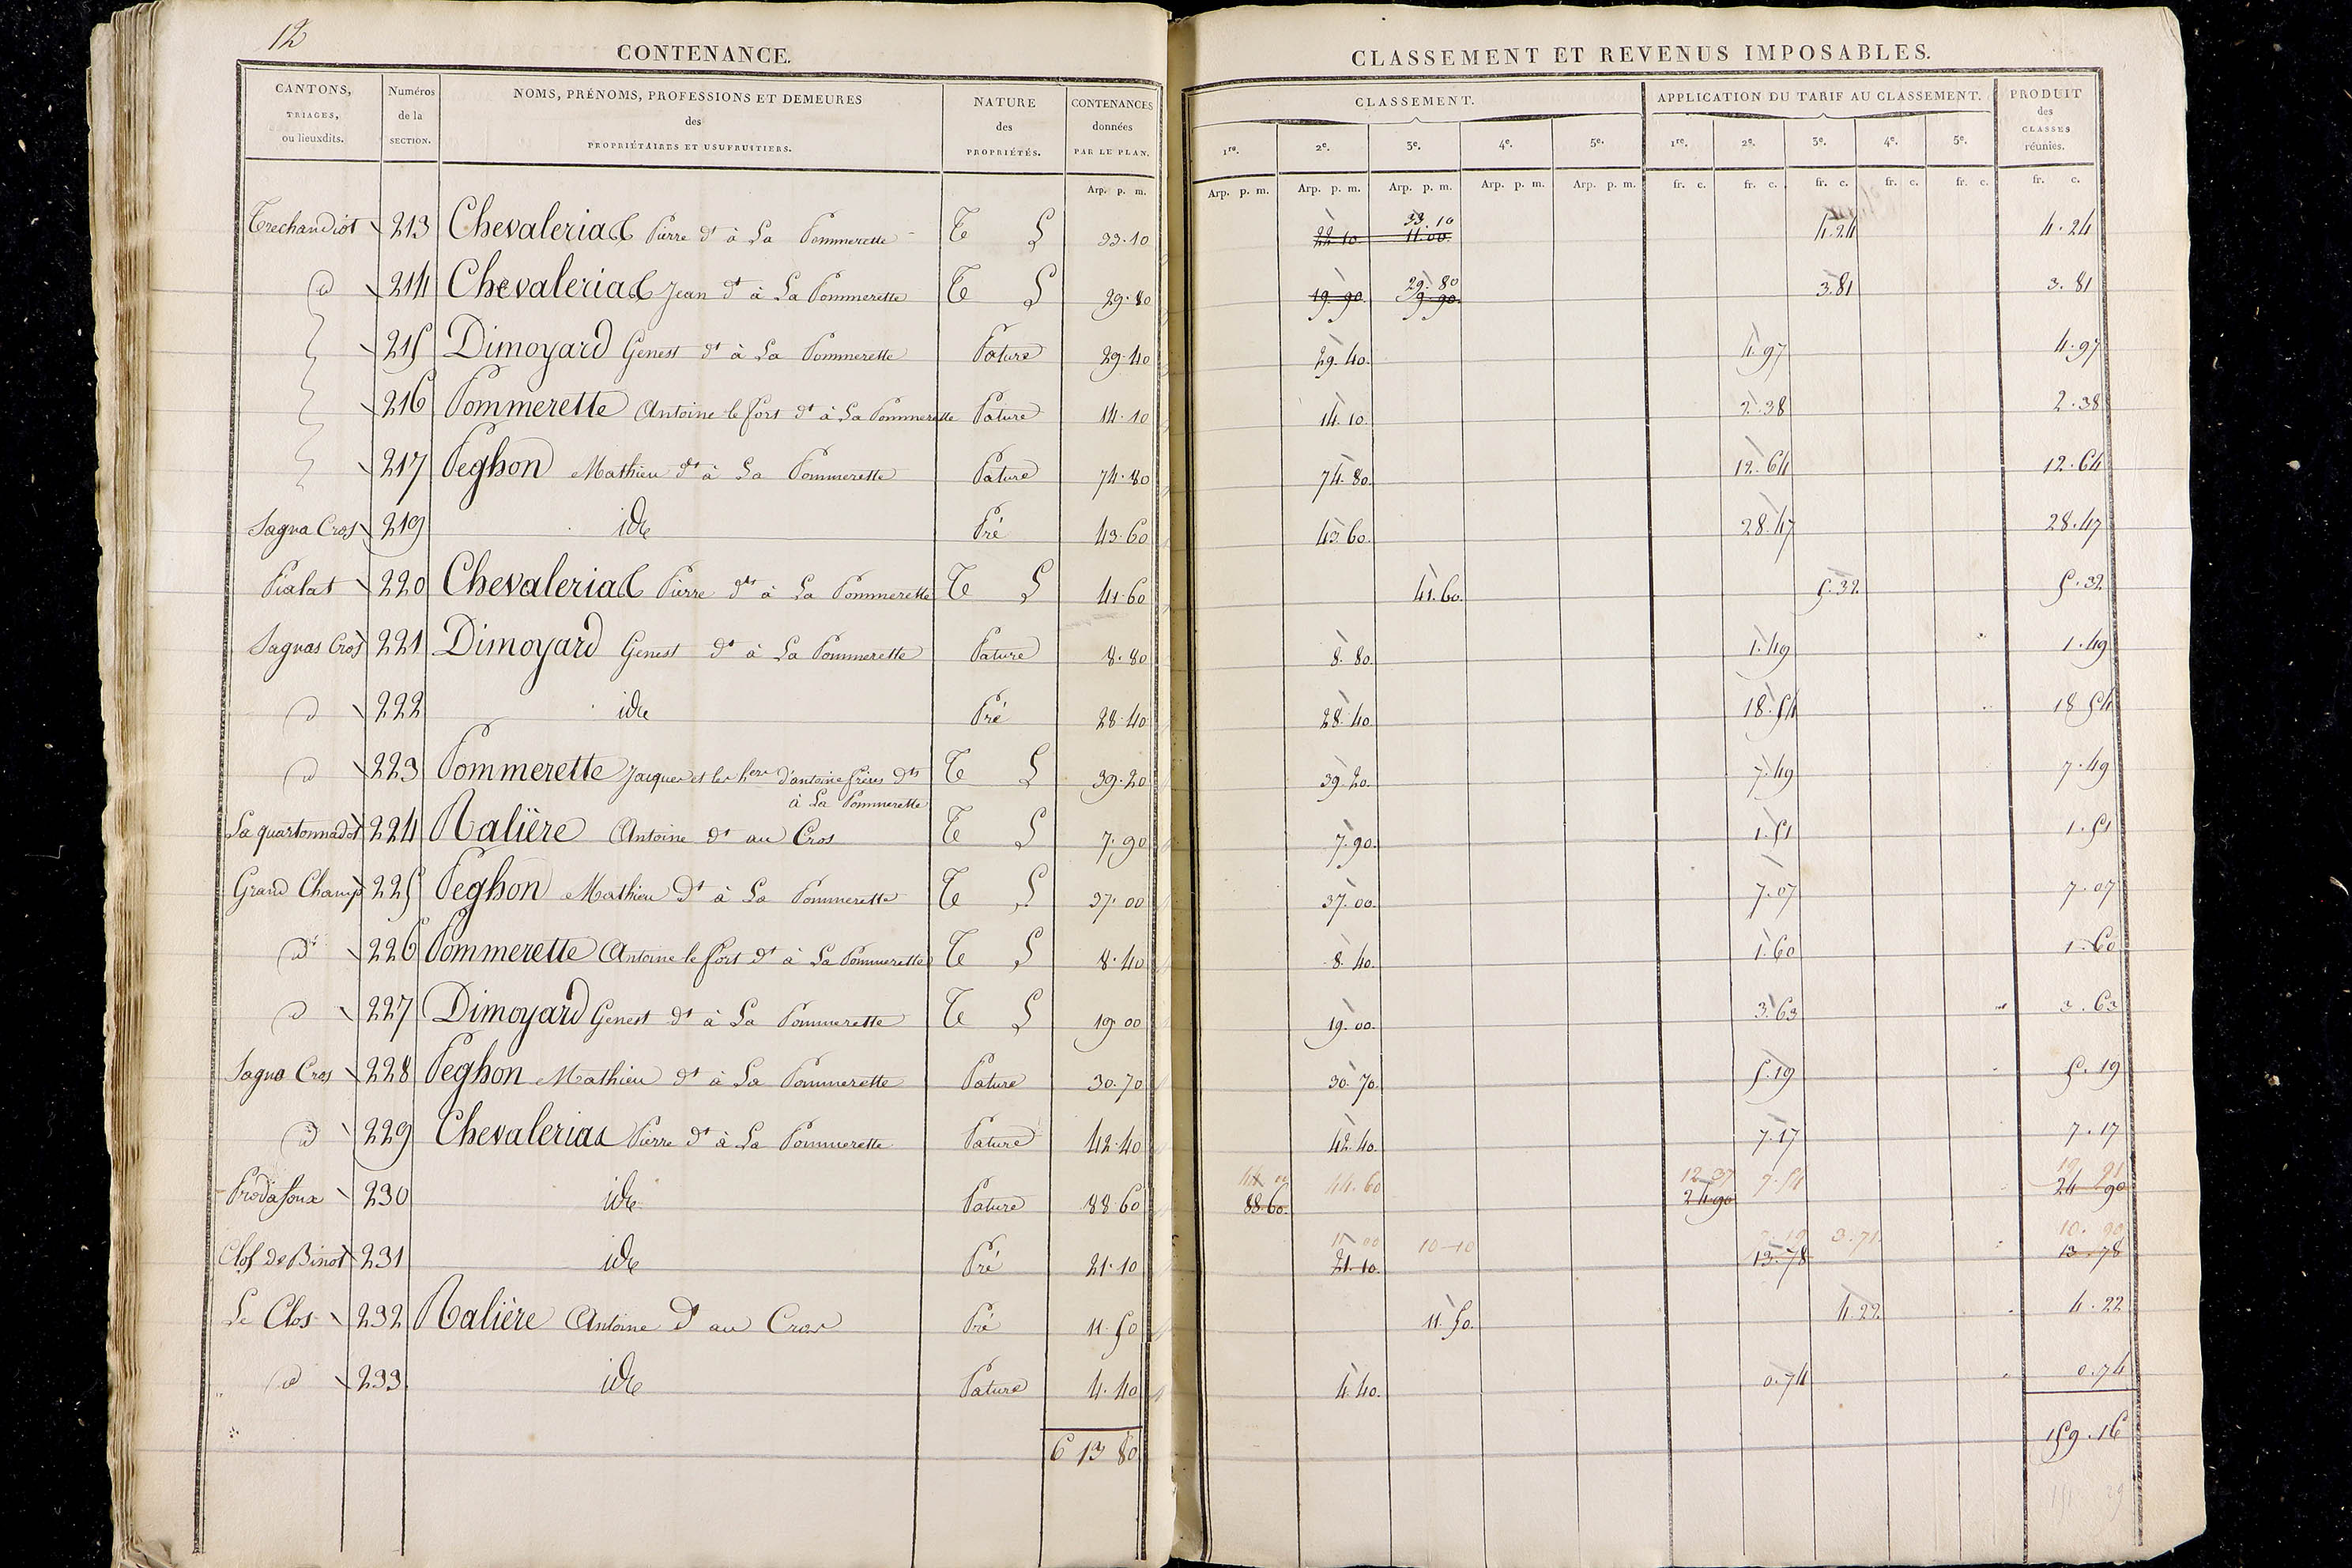 12
CONTENANCE.
CANTONS, TRIAGES, ou lieuxdits. Numéros de la SECTION. NOMS, PRÉNOMS, PROFESSIONS ET DEMEURES des PROPRIÉTAIRES ET USUFRUITIERS. NATURE des PROPRIÉTÉS. CONTENANCES données PAR LE PLAN.
Arp. p. m.
CLASSEMENT ET REVENUS IMPOSABLES.
CLASSEMENT. APPLICATION DU TARIF AU CLASSEMENT. PRODUIT des CLASSES réunies.
1re. 2e. 3e. 4e. 5e. 1re. 2e. 3e. 4e. 5e.
Arp. p. m. Arp. p. m. Arp. p. m. Arp. p. m. Arp. p. m. fr. c. fr. c. fr. c. fr. c. fr. c. fr. c.
Trechandiot 213 Chevalerias Pierre dt à La Pommerette T L 33.10 22 10 33.10 11.00 4.24 4.24
d 214 Chevalerias Jean dt à La Pommerette T L 29.80 19.90 29.80 9.90 3.81 3.81
215 Dimoyard Genest dt à La Pommerette Pature 29.40 29.40 4.97 4.97
216 Pommerette Antoine le fort dt à La Pommerette Pature 14.10 14.10 2.38 2.38
217 Peghon Mathieu dt à La Pommerette Pature 74.80 74.80 12.64 12.64
Sagna Cros 219 ide Pré 43.60 43.60 28.47 28.47
Pialat 220 Chevalerias Pierre dts à La Pommerette T L 41.60 41.60 5.32 5.32
Sagnas Cros 221 Dimoyard Genest dt à La Pommerette Pature 8.80 8.80 1.49 1.49
d 222 ide Pré 28.40 28.40 18.54 18 54
d 223 Pommerette Jacques et les hers d'antoine frères dts T L 39.20 39.20 7.49 7.49
à La Pommerette
La quartonnadot 224 Ralière Antoine dt au Cros T L 7.90 7.90 1.51 1.51
Grand Champ 225 Peghon Mathieu dt à La Pommerette T L 37.00 37.00 7.07 7.07
d 226 Pommerette Antoine le fort dt à La Pommerette T L 8.40 8.40 1.60 1.60
d 227 Dimoyard Genest dt à La Pommerette T L 19 00 19.00 3.63 3.63
Sagna Cros 228 Peghon Mathieu dt à La Pommerette Pature 30.70 30.70 5.19 5.19
d 229 Chevalerias Pierre dt à La Pommerette Pature 42.40 42.40 7.17 7.17
44 00 44.60 12.37 7.54 19 91
230 ide Pature 88.60 88.60 24.90 24 90
11 00 10-10 7.19 3.71 10.90
Clos de Binot 231 ide Pré 21.10 21.10 13.78 13.78
Le Clos 232 Ralière Antoine dt au Cros Pré 11.50 11.50 4.22 4.22
d 233 ide Pature 4.40 4.40 0.74 0.74
6 13 80 159.16